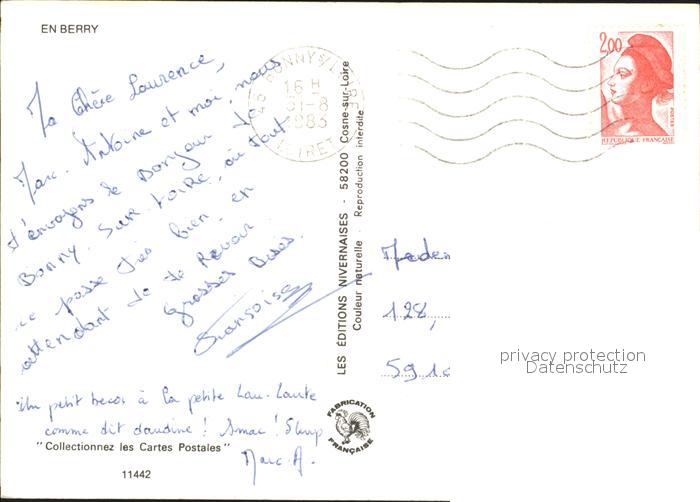 EN BERRY
Ma Chère Laurence,
Marc. Antoine et moi, nous
t'envoyons le Bonjour de
Bonny. Sur. Loire, où tout
ce passe très bien. en
attendant de te Revoir.
Grosses Bises.
Françoise
Un petit becot à la petite Lau-Laute
comme dit
! Smac! Slurp
Marc A.
"Collectionnez les Cartes Postales"
11442
45 BONNY S/L
16 H
31-8
1983
LOIRET
LES ÉDITIONS NIVERNAISES - 58200 Cosne-sur-Loire
Couleur naturelle - Reproduction interdite
FABRICATION
FRANÇAISE
2,00
POSTES
REPUBLIQUE FRANÇAISE
Madem
128,
591
privacy protection
Datenschutz